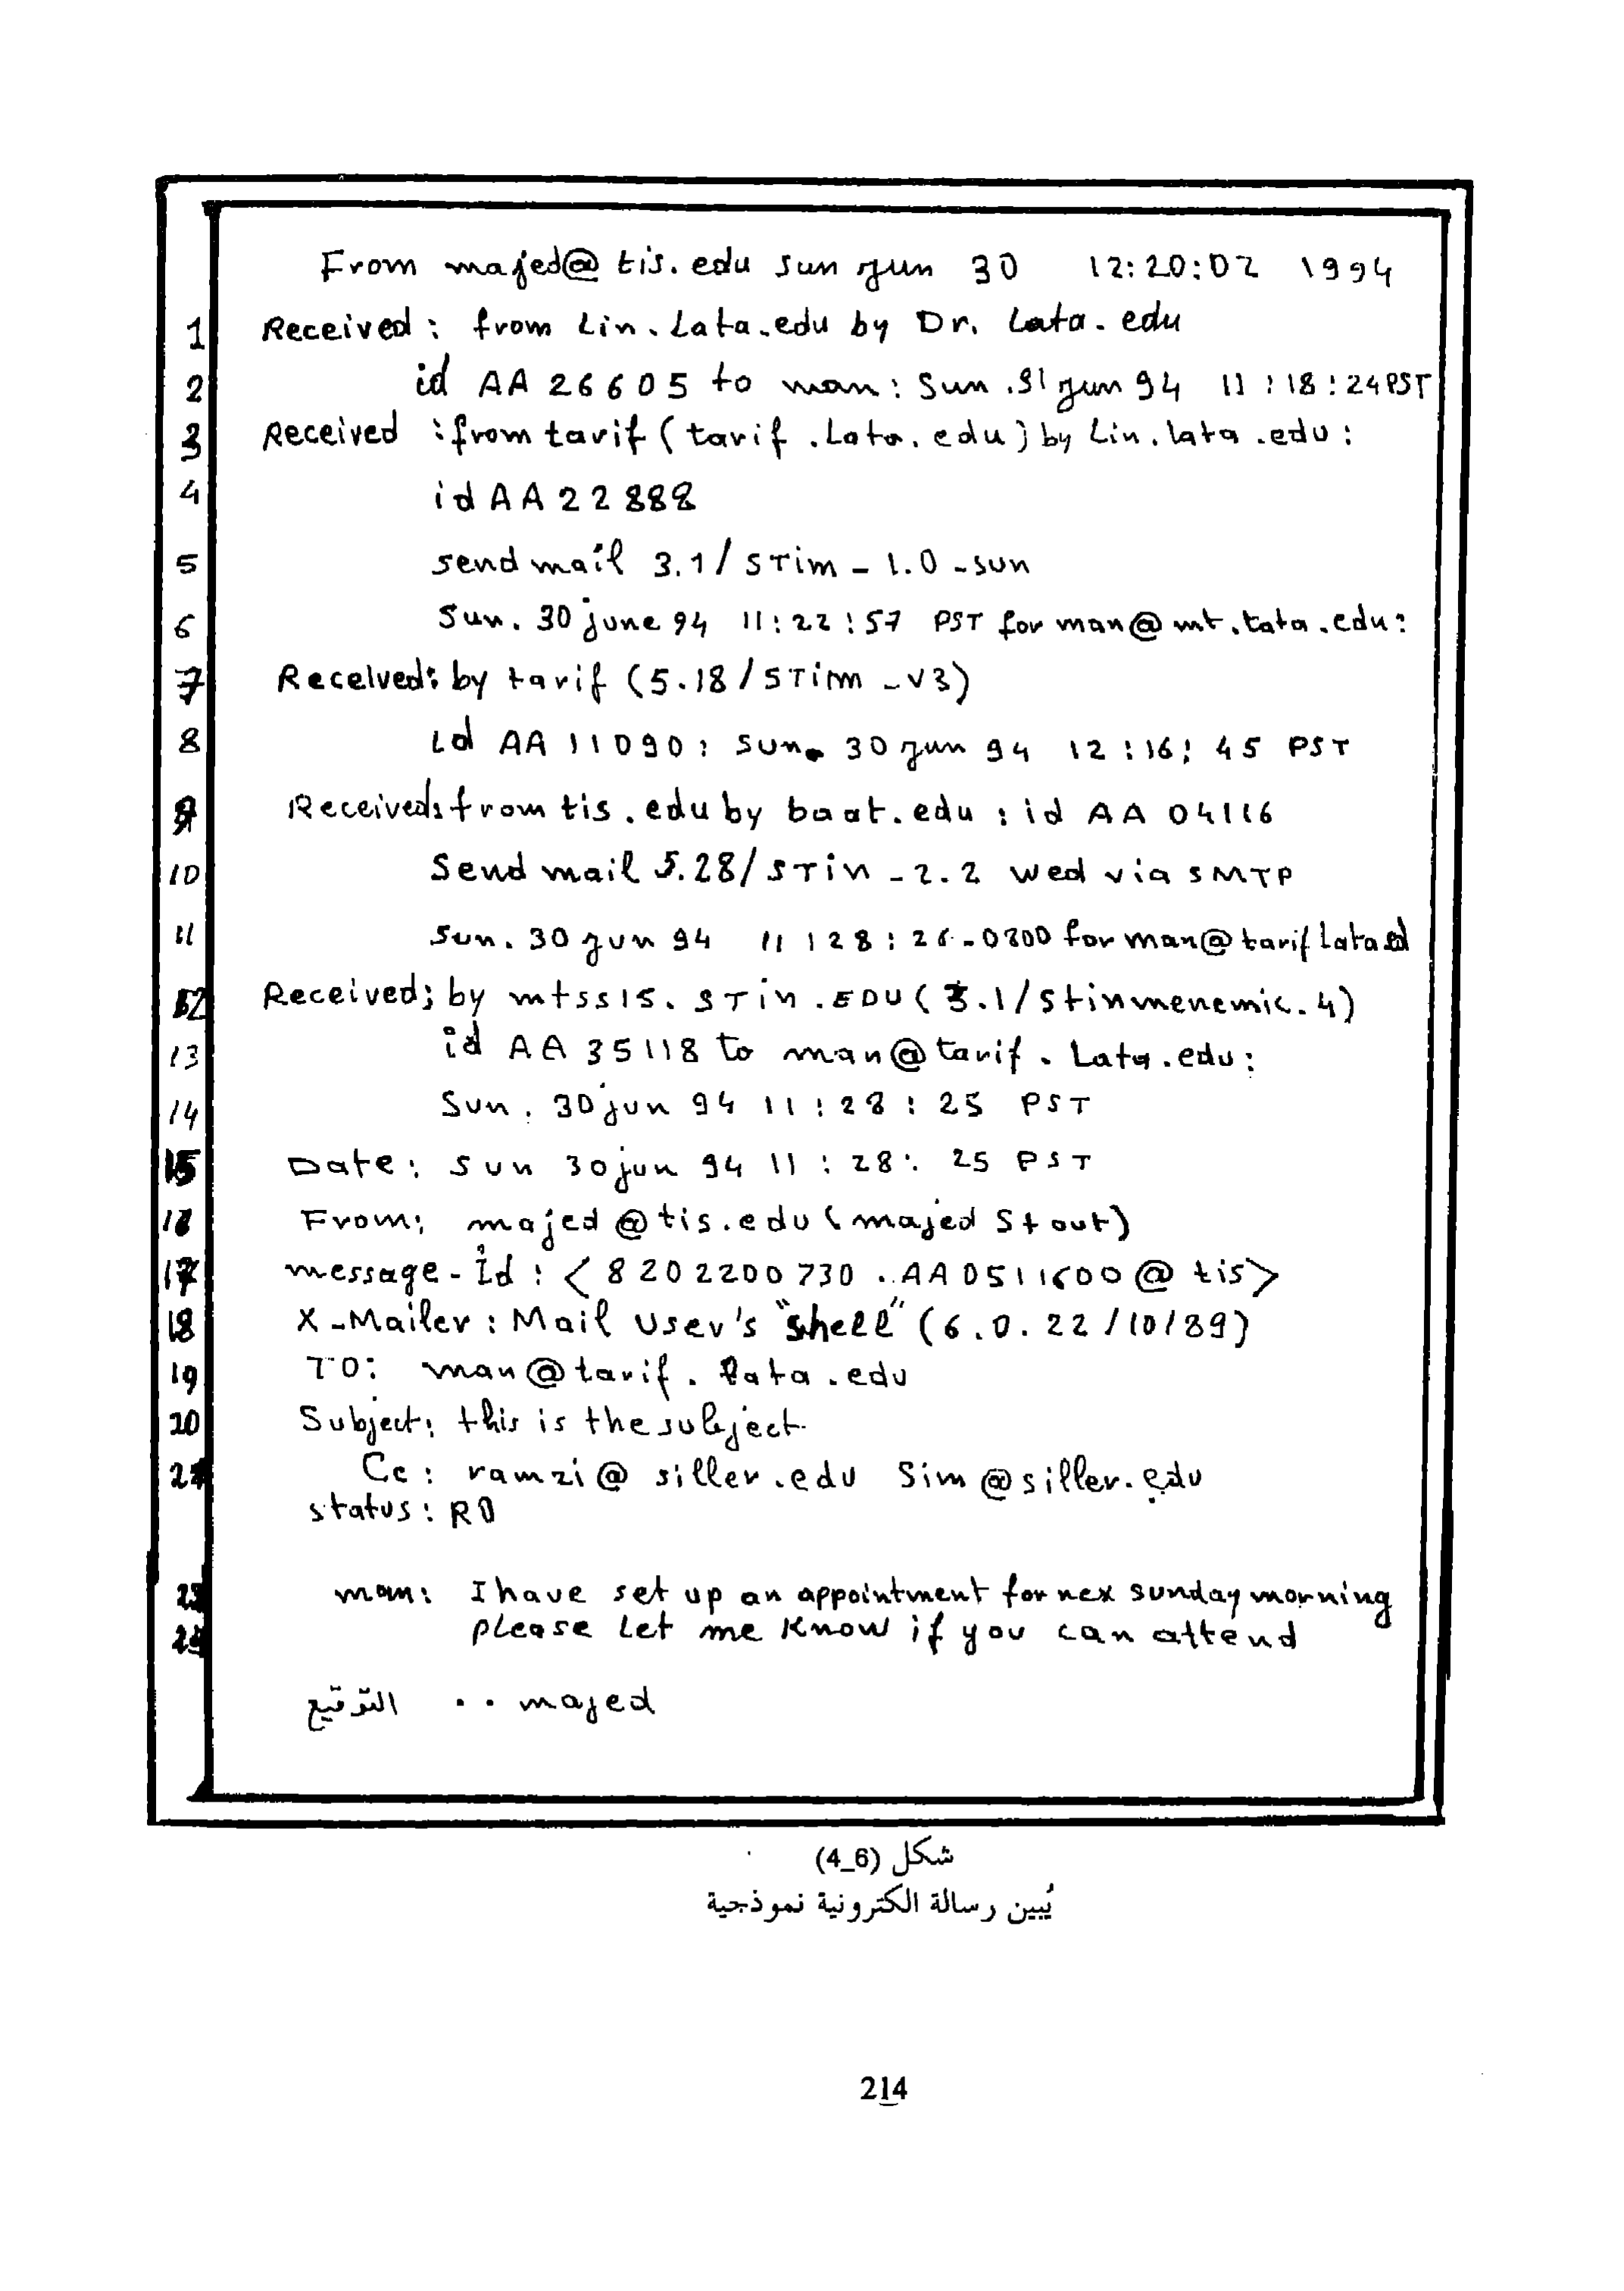 From majed@tis.edu sun jun 30 12:20:02 1994
1 Received: from Lin.Lata.edu by Dr. Lata.edu
2 id AA 26605 to man: Sun .31 jun 94 11:18:24 PST
3 Received :from tarif (tarif .Lata.edu) by Lin.lata.edu:
4 id AA 22888
5 send mail 3.1/STim-1.0-sun
6 Sun. 30 june 94 11:22:57 PST for man@mt.tata.edu:
7 Received: by tarif (5.18/STim-v3)
8 id AA 11090: sun. 30 jun 94 12:16:45 PST
9 Received: from tis.edu by baat.edu: id AA 04116
10 Send mail 5.28/STin-2.2 wed via SMTP
11 Sun. 30 jun 94 11:28:26-0800 for man@tarif Lata ed
12 Received; by mtss15.STin.EDU(3.1/stinmenemic.4)
13 id AA 35118 to man@tarif.Lata.edu:
14 Sun. 30 jun 94 11:28:25 PST
15 Date: Sun 30 jun 94 11:28:25 PST
16 From: majed@tis.edu (majed Stout)
17 message-Id: <8202200730.AA0511600@tis>
18 X-Mailer: Mail User's "shell" (6.0.22/10/89)
19 TO: man@tarif.lata.edu
20 Subject: this is the subject
21 Cc: ramzi@siller.edu Sim@siller.edu
status: RO
23 man: I have set up an appointment for nex sunday morning
24 please let me know if you can attend
التوقيع .. majed
شكل (4_6)
يُبين رسالة الكترونية نموذجية
214